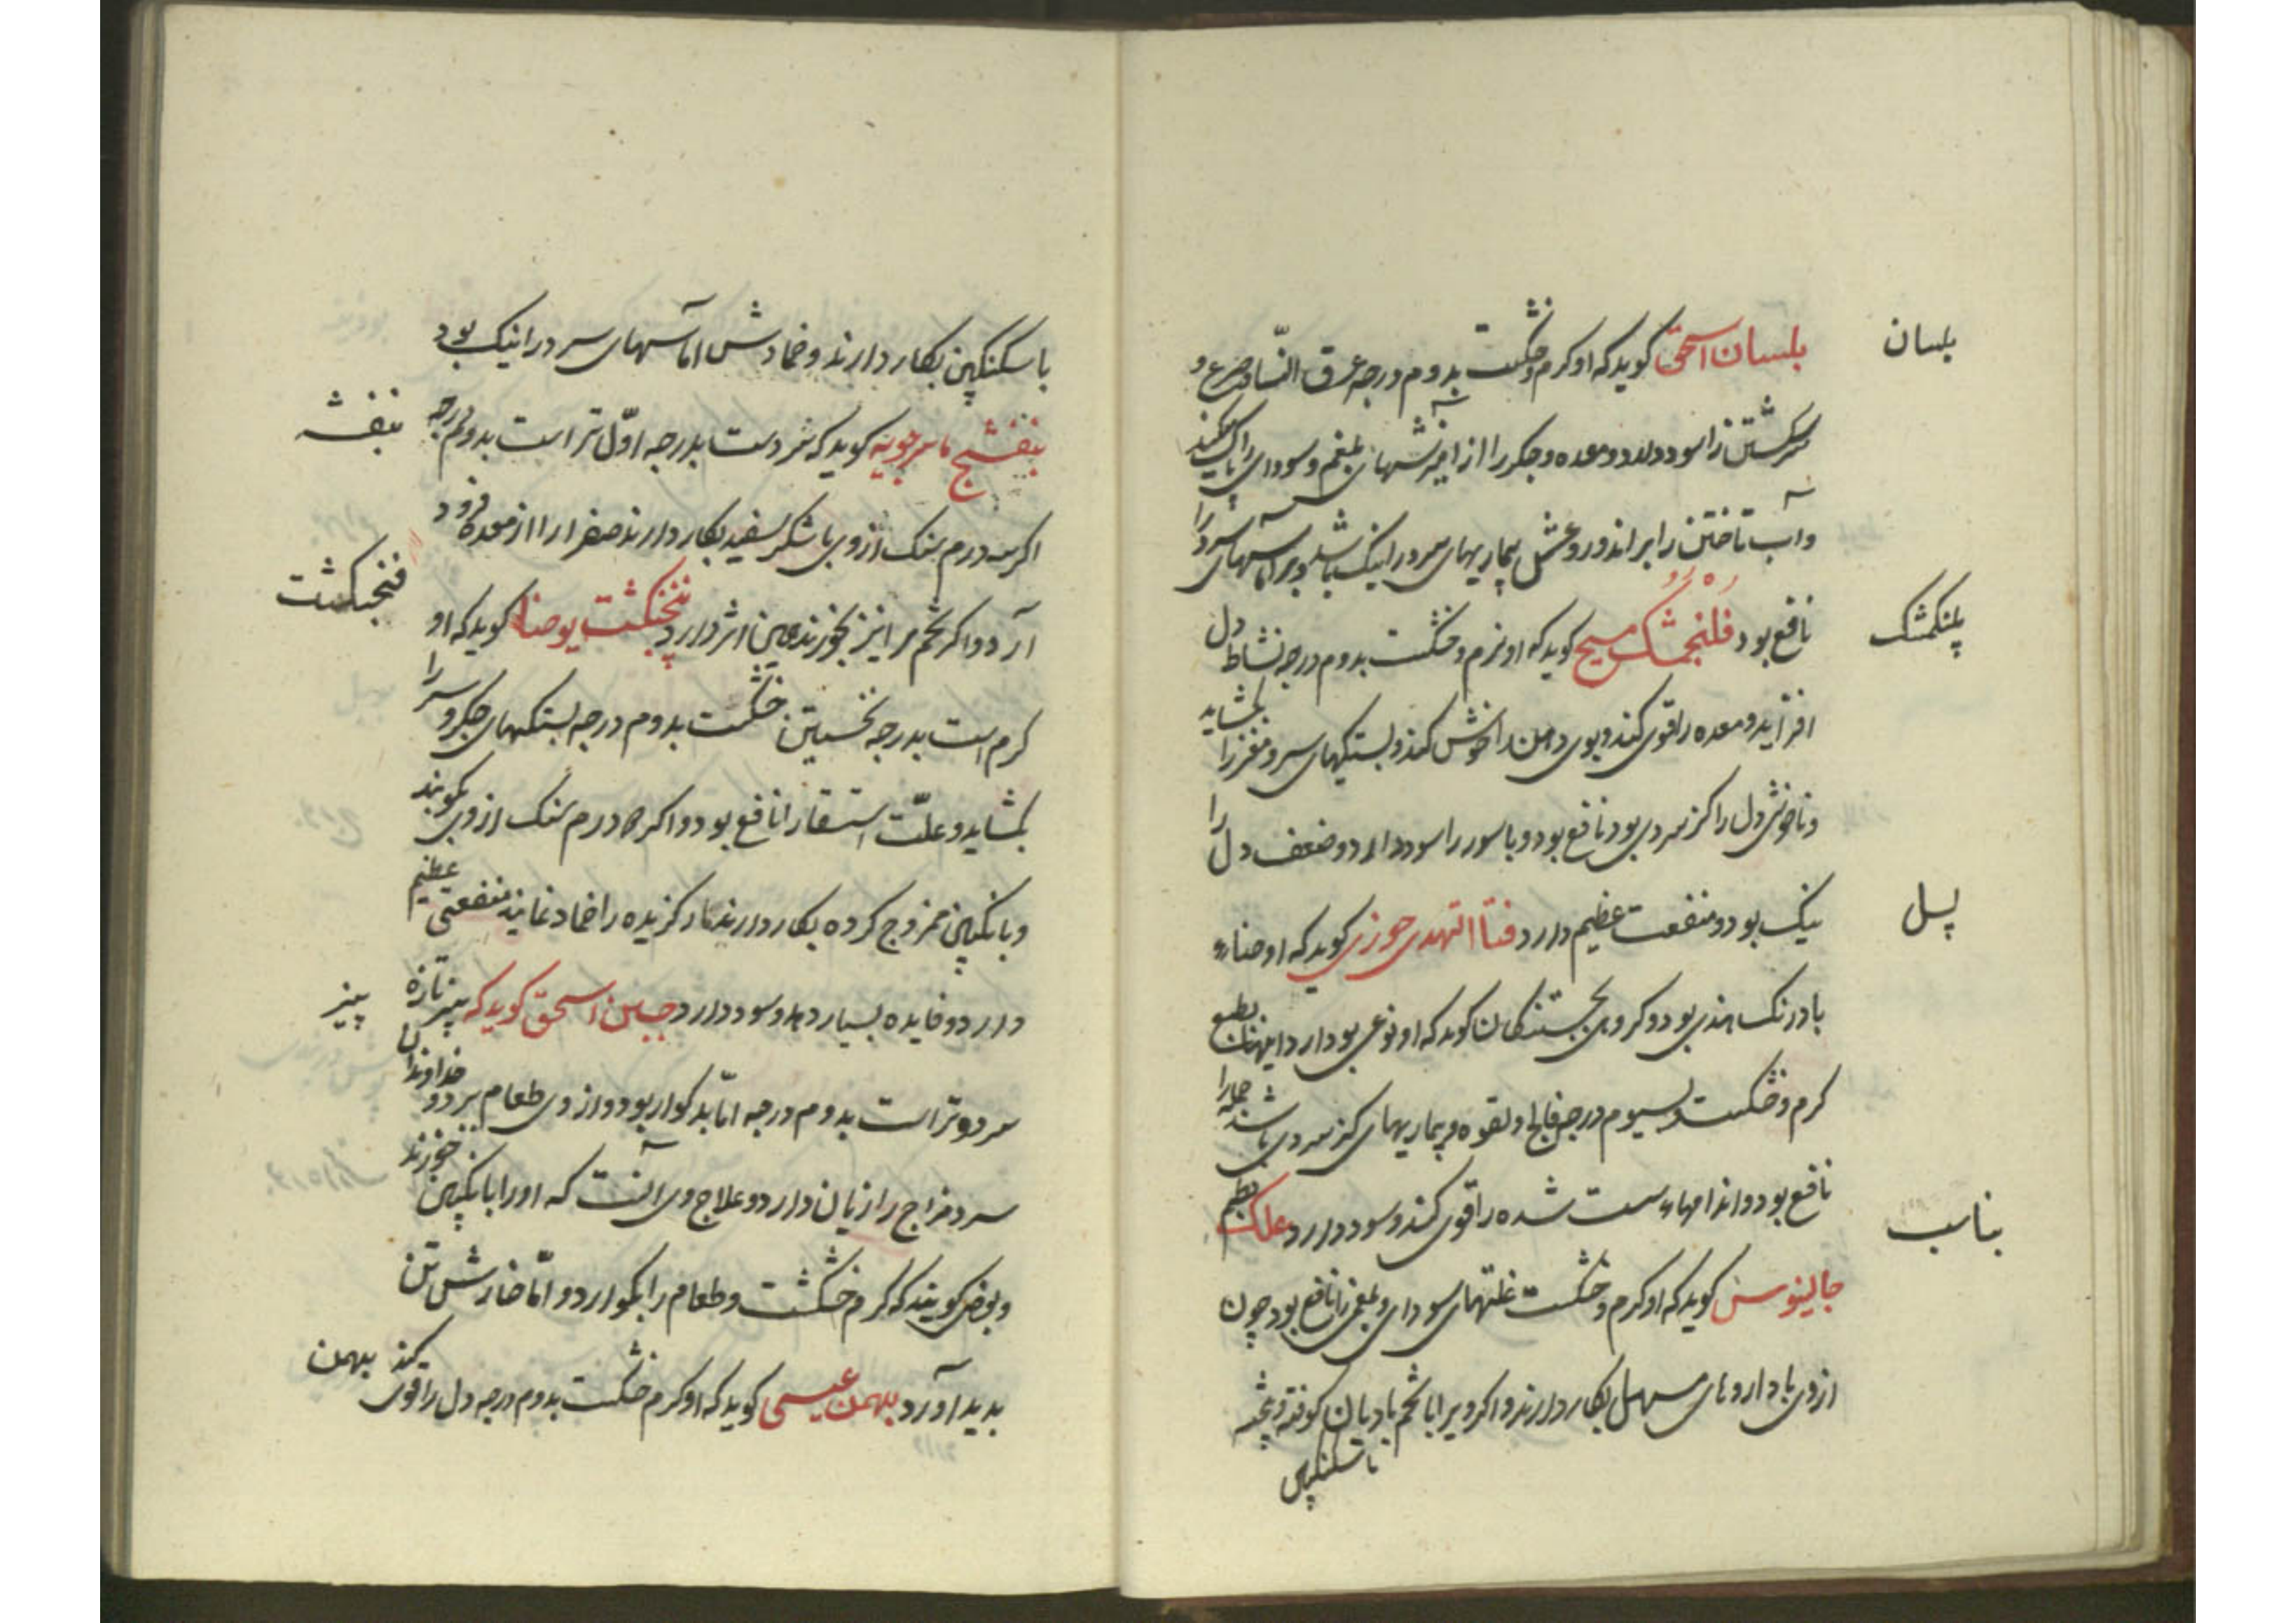 بلسان
بلسان اسحق کوید که او کرم و خشکست بدوم درجه عرق النسا و صرع و
سرکشتن را سود دارد و معده و جکر را از آمیزشهای بلغم و سودای پاک کند
وآب تاختن را براند و روغنش بیماریهای سرد را نیک باشد و مر آماسهای سرد را
پلنکمشک
نافع بود فلنجمشک مسیح کوید که او نرم و خشکست بدوم درجه نشاط دل
افزاید و معده را قوی کند و بوی دهن را خوش کند و بستکیهای سر و مغز را بکشاید
و ناخوشی دل را کز سردی بود نافع بود و باسور را سود دارد و ضعف دل را
پسل
نیک بود و منفعت عظیم دارد قثاا الهندی حوزی کوید که او
بادرنک هندی بود و کروهی کوید که او نوعی بود از
کرم و خشکست بسیوم درجه فالج و لقوه و بیماریهای کز سردی باشد جمله را
نافع بود و اندامهاء سست شده را قوی کند و سود دارد علک بطم
بناسب
جالینوس کوید که او کرم و خشکست علتهای سودای و بلغمی را نافع بود چون
ازوی با داروهای مسهل بکار دارند و اکر ویرا با تخم بادیان کوفته و پخته
با سکنکپین
با سکنکپین بکار دارند و ضمادش اماسهای سر درا نیک بود
بنفشه
بنفشج ماسرجویه کوید که سردست بدرجه اوّل تر است بدوم درجه
اکر سه درم سنک ازوی با شکر سفید بکار دارند صفرا را از معده فرود
فنجنکشت
آرد و اکر تخم مر انیز بخورند همین اثر دارد پنجنکشت یوحنا کوید که او
کرم است بدرجه نخستین خشکست بدوم درجه بستکیهای جکر و سر را
بکشاید و علّت استسقا را نافع بود و اکر درم سنک ازوی بکوبند
وبا نکپین ممزوج کرده بکار دارند مار کزیده را ضماد نمایند منفعتی عظیم
پنیر
دارد و فایده بسیار دهد و سود دارد جبن اسحق کوید که پنیر تازه
سرد و تر است بدوم درجه امّا بد کوار بود و از وی طعام خداوندان
سرد مزاج را زیان دارد و علاج وی آنست که اورا با نکپین خورند
و بعضی کویند که کرم خشکست و طعام را بکوارد و امّا خارش تن
بهمن
بدید آورد بهمن عیسی کوید که او کرم خشکست بدوم درجه دل را قوی کند